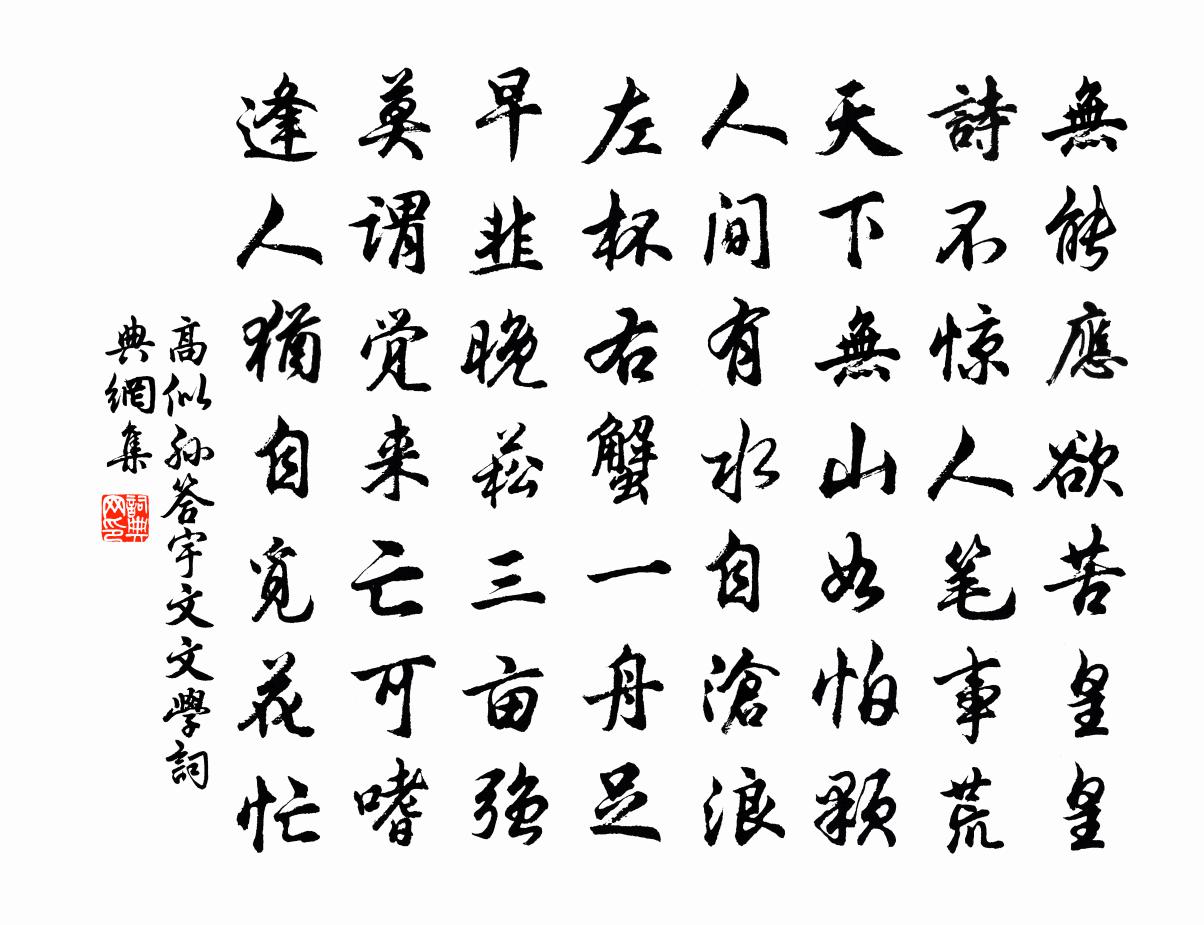 無能應欲苦皇皇
詩不惊人笔事荒
天下無山如怕颗
人间有水自滄浪
左杯右蟹一舟足
早韭晚菘三亩强
莫谓觉来亡可嗜
逢人猶自觅花忙
高似孙答宇文文學詞
典網集
詞典網印